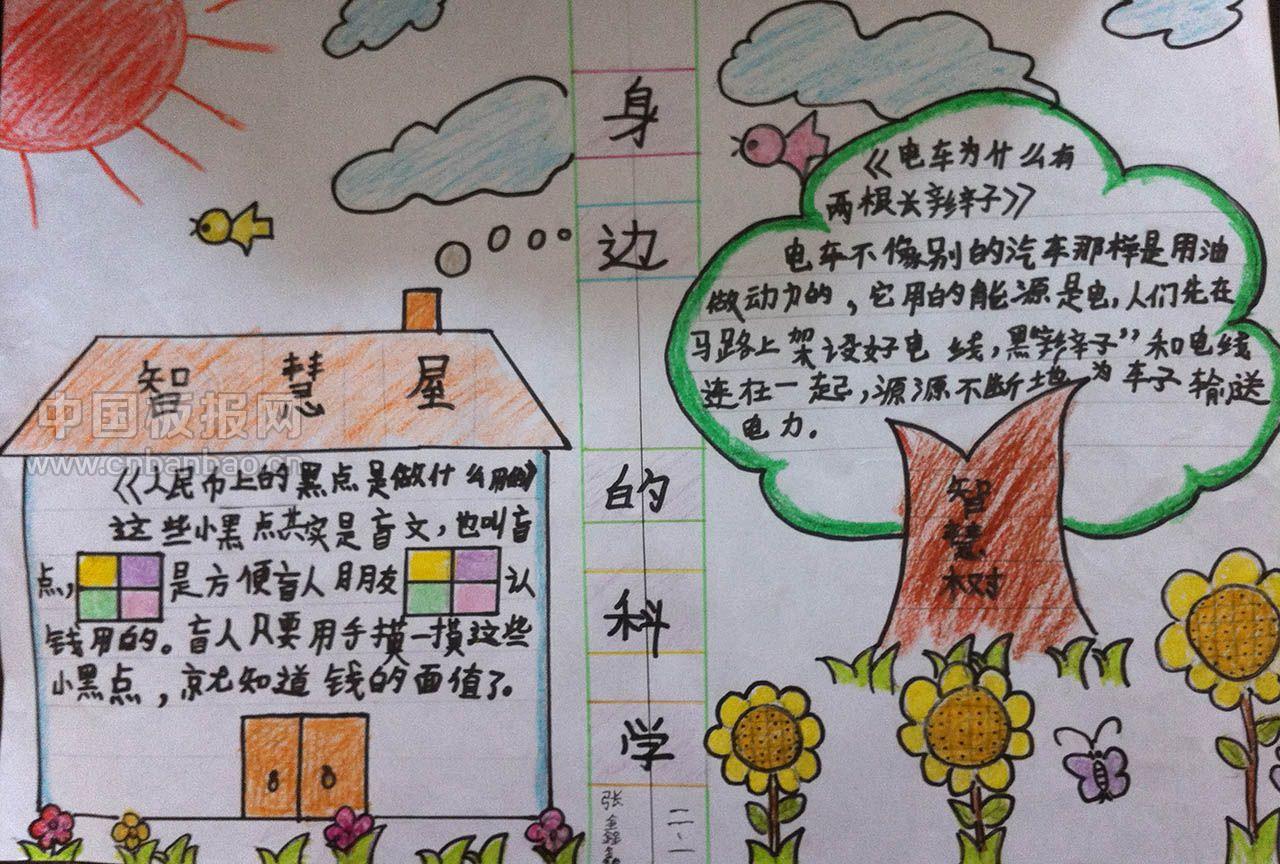 身
边
的
科
学
智慧屋
中国板报网
www.cnbanbao.cn
《人民币上的黑点是做什么用的》
这些小黑点其实是盲文，也叫盲
点，是方便盲人朋友认
钱用的。盲人只要用手摸一摸这些
小黑点，就知道钱的面值了。
《电车为什么有
两根长辫子》
电车不像别的汽车那样是用油
做动力的，它用的能源是电，人们先在
马路上架设好电线，黑“辫子”和电线
连在一起，源源不断地为车子输送
电力。
智
慧
树
张
二、一